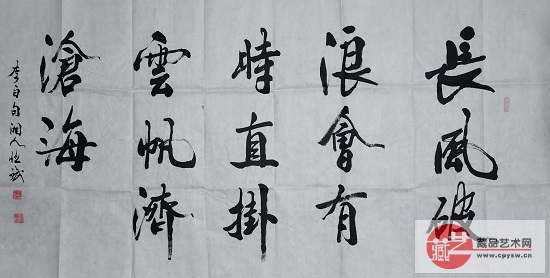 長風破
浪會有
時直掛
雲帆濟
滄海
李白句湘人
藏品艺术网
www.cpysw.cn